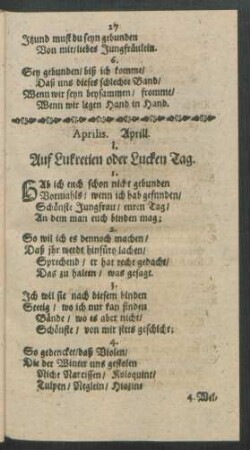 27
Itzund must du seyn gebunden
Von mir/liebes Jungfräulein.
6.
Sey gebunden/ biß ich komme/
Daß uns dieses schlechte Band/
Wenn wir seyn beysammen/ fromme/
Wenn wir legen Hand in Hand.
Aprilis. Aprill.
I.
Auf Lukretien oder Lucken Tag.
1.
HAb ich euch schon nicht gebunden
Vormahls/ wenn ich hab gefunden/
Schönste Jungfrau/ euren Tag/
An dem man euch binden mag;
2.
So wil ich es dennoch machen/
Daß jhr werdt hinfüro lachen/
Sprechend/ er hat recht gedacht/
Das zu halten/ was gesagt.
3.
Ich wil sie nach diesem binden
Stetig/ wo ich nur kan finden
Bände/ wo es aber nicht/
Schönste/ von mir stets geschicht;
4.
So gedencket/daß Violen/
Die der Winter uns gestolen
Nicht Narcissen/ Koloquint/
Tulpen/ Neglein/ Hiazint
4. Wel-